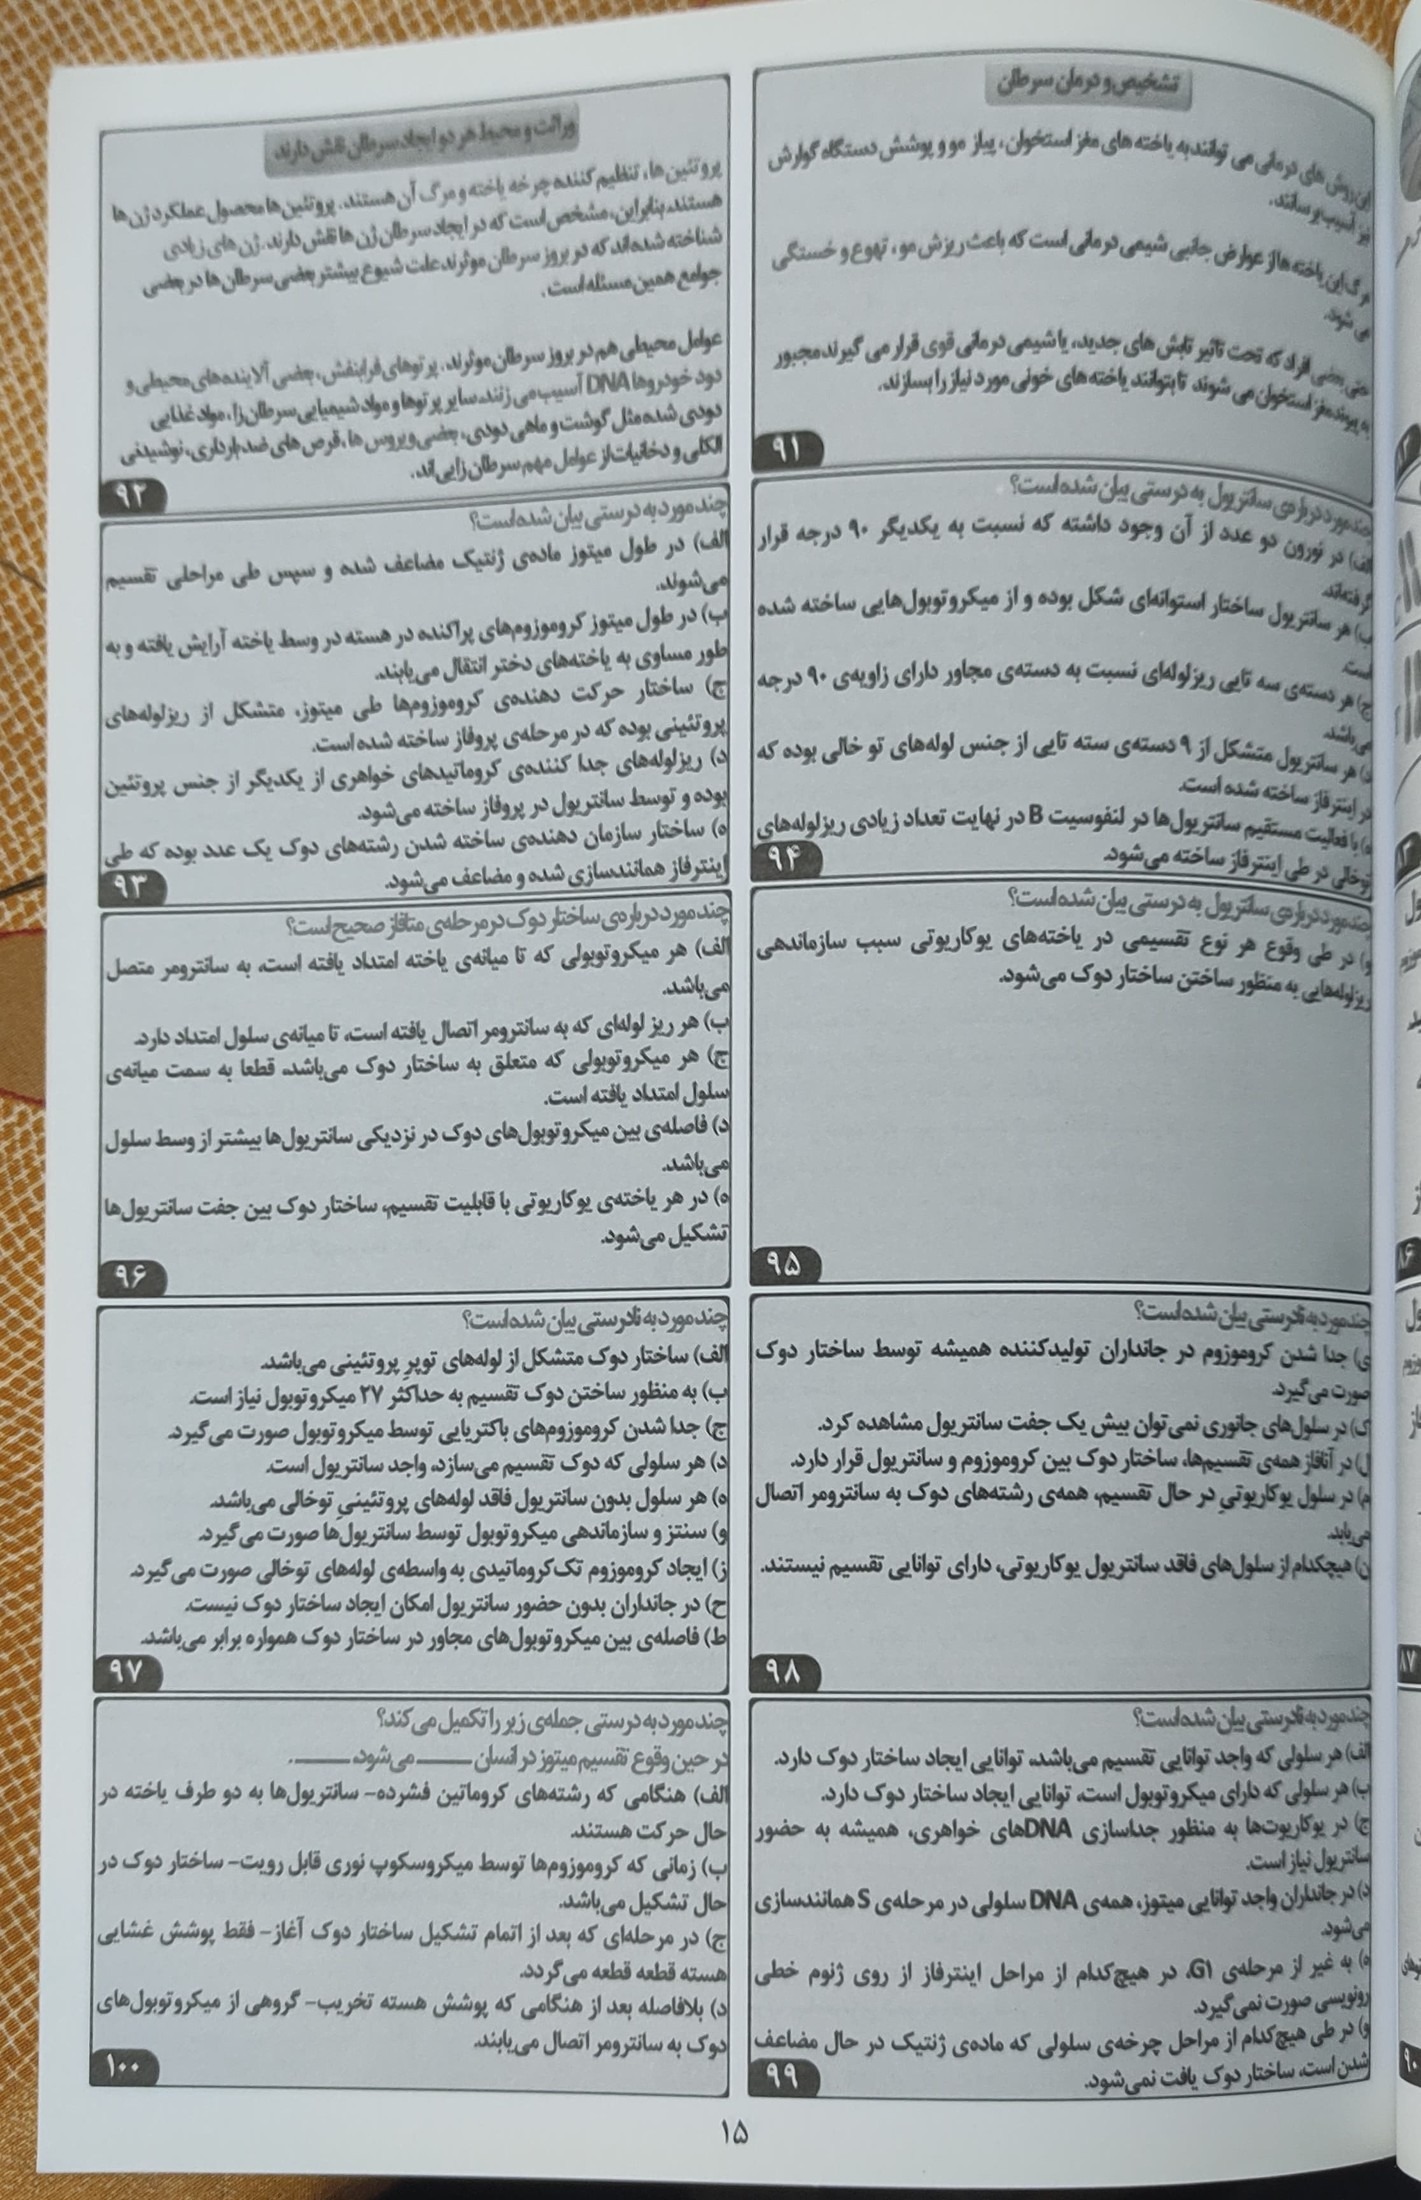 تشخیص و درمان سرطان
این روش های درمانی می توانند به یاخته های مغز استخوان، پیاز مو و پوشش دستگاه گوارش
نیز آسیب برسانند.
مرگ این یاخته ها از عوارض جانبی شیمی درمانی است که باعث ریزش مو، تهوع و خستگی
می شود.
حتی بعضی افراد که تحت تاثیر تابش های جدید، یا شیمی درمانی قوی قرار می گیرند مجبور
به پیوند مغز استخوان می شوند تا بتوانند یاخته های خونی مورد نیاز را بسازند.
۹۱
وراثت و محیط هر دو ایجاد سرطان نقش دارند
پروتئین ها، تنظیم کننده چرخه یاخته و مرگ آن هستند. پروتئین ها محصول عملکرد ژن ها
هستند، بنابراین، مشخص است که در ایجاد سرطان ژن ها نقش دارند. ژن های زیادی
شناخته شده اند که در بروز سرطان موثرند علت شیوع بیشتر بعضی سرطان ها در بعضی
جوامع همین مسئله است.
عوامل محیطی هم در بروز سرطان موثرند. پرتوهای فرابنفش، بعضی آلاینده های محیطی و
دود خودروها DNA آسیب می زنند. سایر پرتوها و مواد شیمیایی سرطان زا، مواد غذایی
دودی شده مثل گوشت و ماهی دودی، بعضی ویروس ها، قرص های ضدبارداری، نوشیدنی
الکلی و دخانیات از عوامل مهم سرطان زایی اند.
۹۲
چند مورد درباره‌ی سانتریول به درستی بیان شده است؟
الف) در نورون دو عدد از آن وجود داشته که نسبت به یکدیگر ۹۰ درجه قرار
گرفته‌اند.
ب) هر سانتریول ساختار استوانه‌ای شکل بوده و از میکروتوبول‌هایی ساخته شده
است.
ج) هر دسته‌ی سه تایی ریزلوله‌ای نسبت به دسته‌ی مجاور دارای زاویه‌ی ۹۰ درجه
می‌باشد.
د) هر سانتریول متشکل از ۹ دسته‌ی سته تایی از جنس لوله‌های تو خالی بوده که
در اینترفاز ساخته شده است.
ه) با فعالیت مستقیم سانتریول‌ها در لنفوسیت B در نهایت تعداد زیادی ریزلوله‌های
توخالی در طی اینترفاز ساخته می‌شود.
۹۴
چند مورد به درستی بیان شده است؟
الف) در طول میتوز ماده‌ی ژنتیک مضاعف شده و سپس طی مراحلی تقسیم
می‌شوند.
ب) در طول میتوز کروموزوم‌های پراکنده در هسته در وسط یاخته آرایش یافته و به
طور مساوی به یاخته‌های دختر انتقال می‌یابند.
ج) ساختار حرکت دهنده‌ی کروموزوم‌ها طی میتوز، متشکل از ریزلوله‌های
پروتئینی بوده که در مرحله‌ی پروفاز ساخته شده است.
د) ریزلوله‌های جدا کننده‌ی کروماتیدهای خواهری از یکدیگر از جنس پروتئین
بوده و توسط سانتریول در پروفاز ساخته می‌شود.
ه) ساختار سازمان دهنده‌ی ساخته شدن رشته‌های دوک یک عدد بوده که طی
اینترفاز همانندسازی شده و مضاعف می‌شود.
۹۳
چند مورد درباره‌ی سانتریول به درستی بیان شده است؟
و) در طی وقوع هر نوع تقسیمی در یاخته‌های یوکاریوتی سبب سازماندهی
ریزلوله‌هایی به منظور ساختن ساختار دوک می‌شود.
۹۵
چند مورد درباره‌ی ساختار دوک در مرحله‌ی متافاز صحیح است؟
الف) هر میکروتوبولی که تا میانه‌ی یاخته امتداد یافته است، به سانترومر متصل
می‌باشد.
ب) هر ریز لوله‌ای که به سانترومر اتصال یافته است، تا میانه‌ی سلول امتداد دارد.
ج) هر میکروتوبولی که متعلق به ساختار دوک می‌باشد، قطعا به سمت میانه‌ی
سلول امتداد یافته است.
د) فاصله‌ی بین میکروتوبول‌های دوک در نزدیکی سانتریول‌ها بیشتر از وسط سلول
می‌باشد.
ه) در هر یاخته‌ی یوکاریوتی با قابلیت تقسیم، ساختار دوک بین جفت سانتریول‌ها
تشکیل می‌شود.
۹۶
چند مورد به نادرستی بیان شده است؟
ی) جدا شدن کروموزوم در جانداران تولیدکننده همیشه توسط ساختار دوک
صورت می‌گیرد.
ک) در سلول‌های جانوری نمی‌توان بیش یک جفت سانتریول مشاهده کرد.
ل) در آنافاز همه‌ی تقسیم‌ها، ساختار دوک بین کروموزوم و سانتریول قرار دارد.
م) در سلول یوکاریوتیِ در حال تقسیم، همه‌ی رشته‌های دوک به سانترومر اتصال
می‌یابد.
ن) هیچکدام از سلول‌های فاقد سانتریول یوکاریوتی، دارای توانایی تقسیم نیستند.
۹۸
چند مورد به نادرستی بیان شده است؟
الف) ساختار دوک متشکل از لوله‌های توپرِ پروتئینی می‌باشد.
ب) به منظور ساختن دوک تقسیم به حداکثر ۲۷ میکروتوبول نیاز است.
ج) جدا شدن کروموزوم‌های باکتریایی توسط میکروتوبول صورت می‌گیرد.
د) هر سلولی که دوک تقسیم می‌سازد، واجد سانتریول است.
ه) هر سلول بدون سانتریول فاقد لوله‌های پروتئینیِ توخالی می‌باشد.
و) سنتز و سازماندهی میکروتوبول توسط سانتریول‌ها صورت می‌گیرد.
ز) ایجاد کروموزوم تک‌کروماتیدی به واسطه‌ی لوله‌های توخالی صورت می‌گیرد.
ح) در جانداران بدون حضور سانتریول امکان ایجاد ساختار دوک نیست.
ط) فاصله‌ی بین میکروتوبول‌های مجاور در ساختار دوک همواره برابر می‌باشد.
۹۷
چند مورد به نادرستی بیان شده است؟
الف) هر سلولی که واجد توانایی تقسیم می‌باشد، توانایی ایجاد ساختار دوک دارد.
ب) هر سلولی که دارای میکروتوبول است، توانایی ایجاد ساختار دوک دارد.
ج) در یوکاریوت‌ها به منظور جداسازی DNAهای خواهری، همیشه به حضور
سانتریول نیاز است.
د) در جانداران واجد توانایی میتوز، همه‌ی DNA سلولی در مرحله‌ی S همانندسازی
می‌شود.
ه) به غیر از مرحله‌ی G1، در هیچ‌کدام از مراحل اینترفاز از روی ژنوم خطی
رونویسی صورت نمی‌گیرد.
و) در طی هیچ‌کدام از مراحل چرخه‌ی سلولی که ماده‌ی ژنتیک در حال مضاعف
شدن است، ساختار دوک یافت نمی‌شود.
۹۹
چند مورد به درستی جمله‌ی زیر را تکمیل می‌کند؟
در حین وقوع تقسیم میتوز در انسان ــــــــ می‌شود، ــــــــ .
الف) هنگامی که رشته‌های کروماتین فشرده- سانتریول‌ها به دو طرف یاخته در
حال حرکت هستند.
ب) زمانی که کروموزوم‌ها توسط میکروسکوپ نوری قابل رویت- ساختار دوک در
حال تشکیل می‌باشد.
ج) در مرحله‌ای که بعد از اتمام تشکیل ساختار دوک آغاز- فقط پوشش غشایی
هسته قطعه قطعه می‌گردد.
د) بلافاصله بعد از هنگامی که پوشش هسته تخریب- گروهی از میکروتوبول‌های
دوک به سانترومر اتصال می‌یابند.
۱۰۰
۱۵